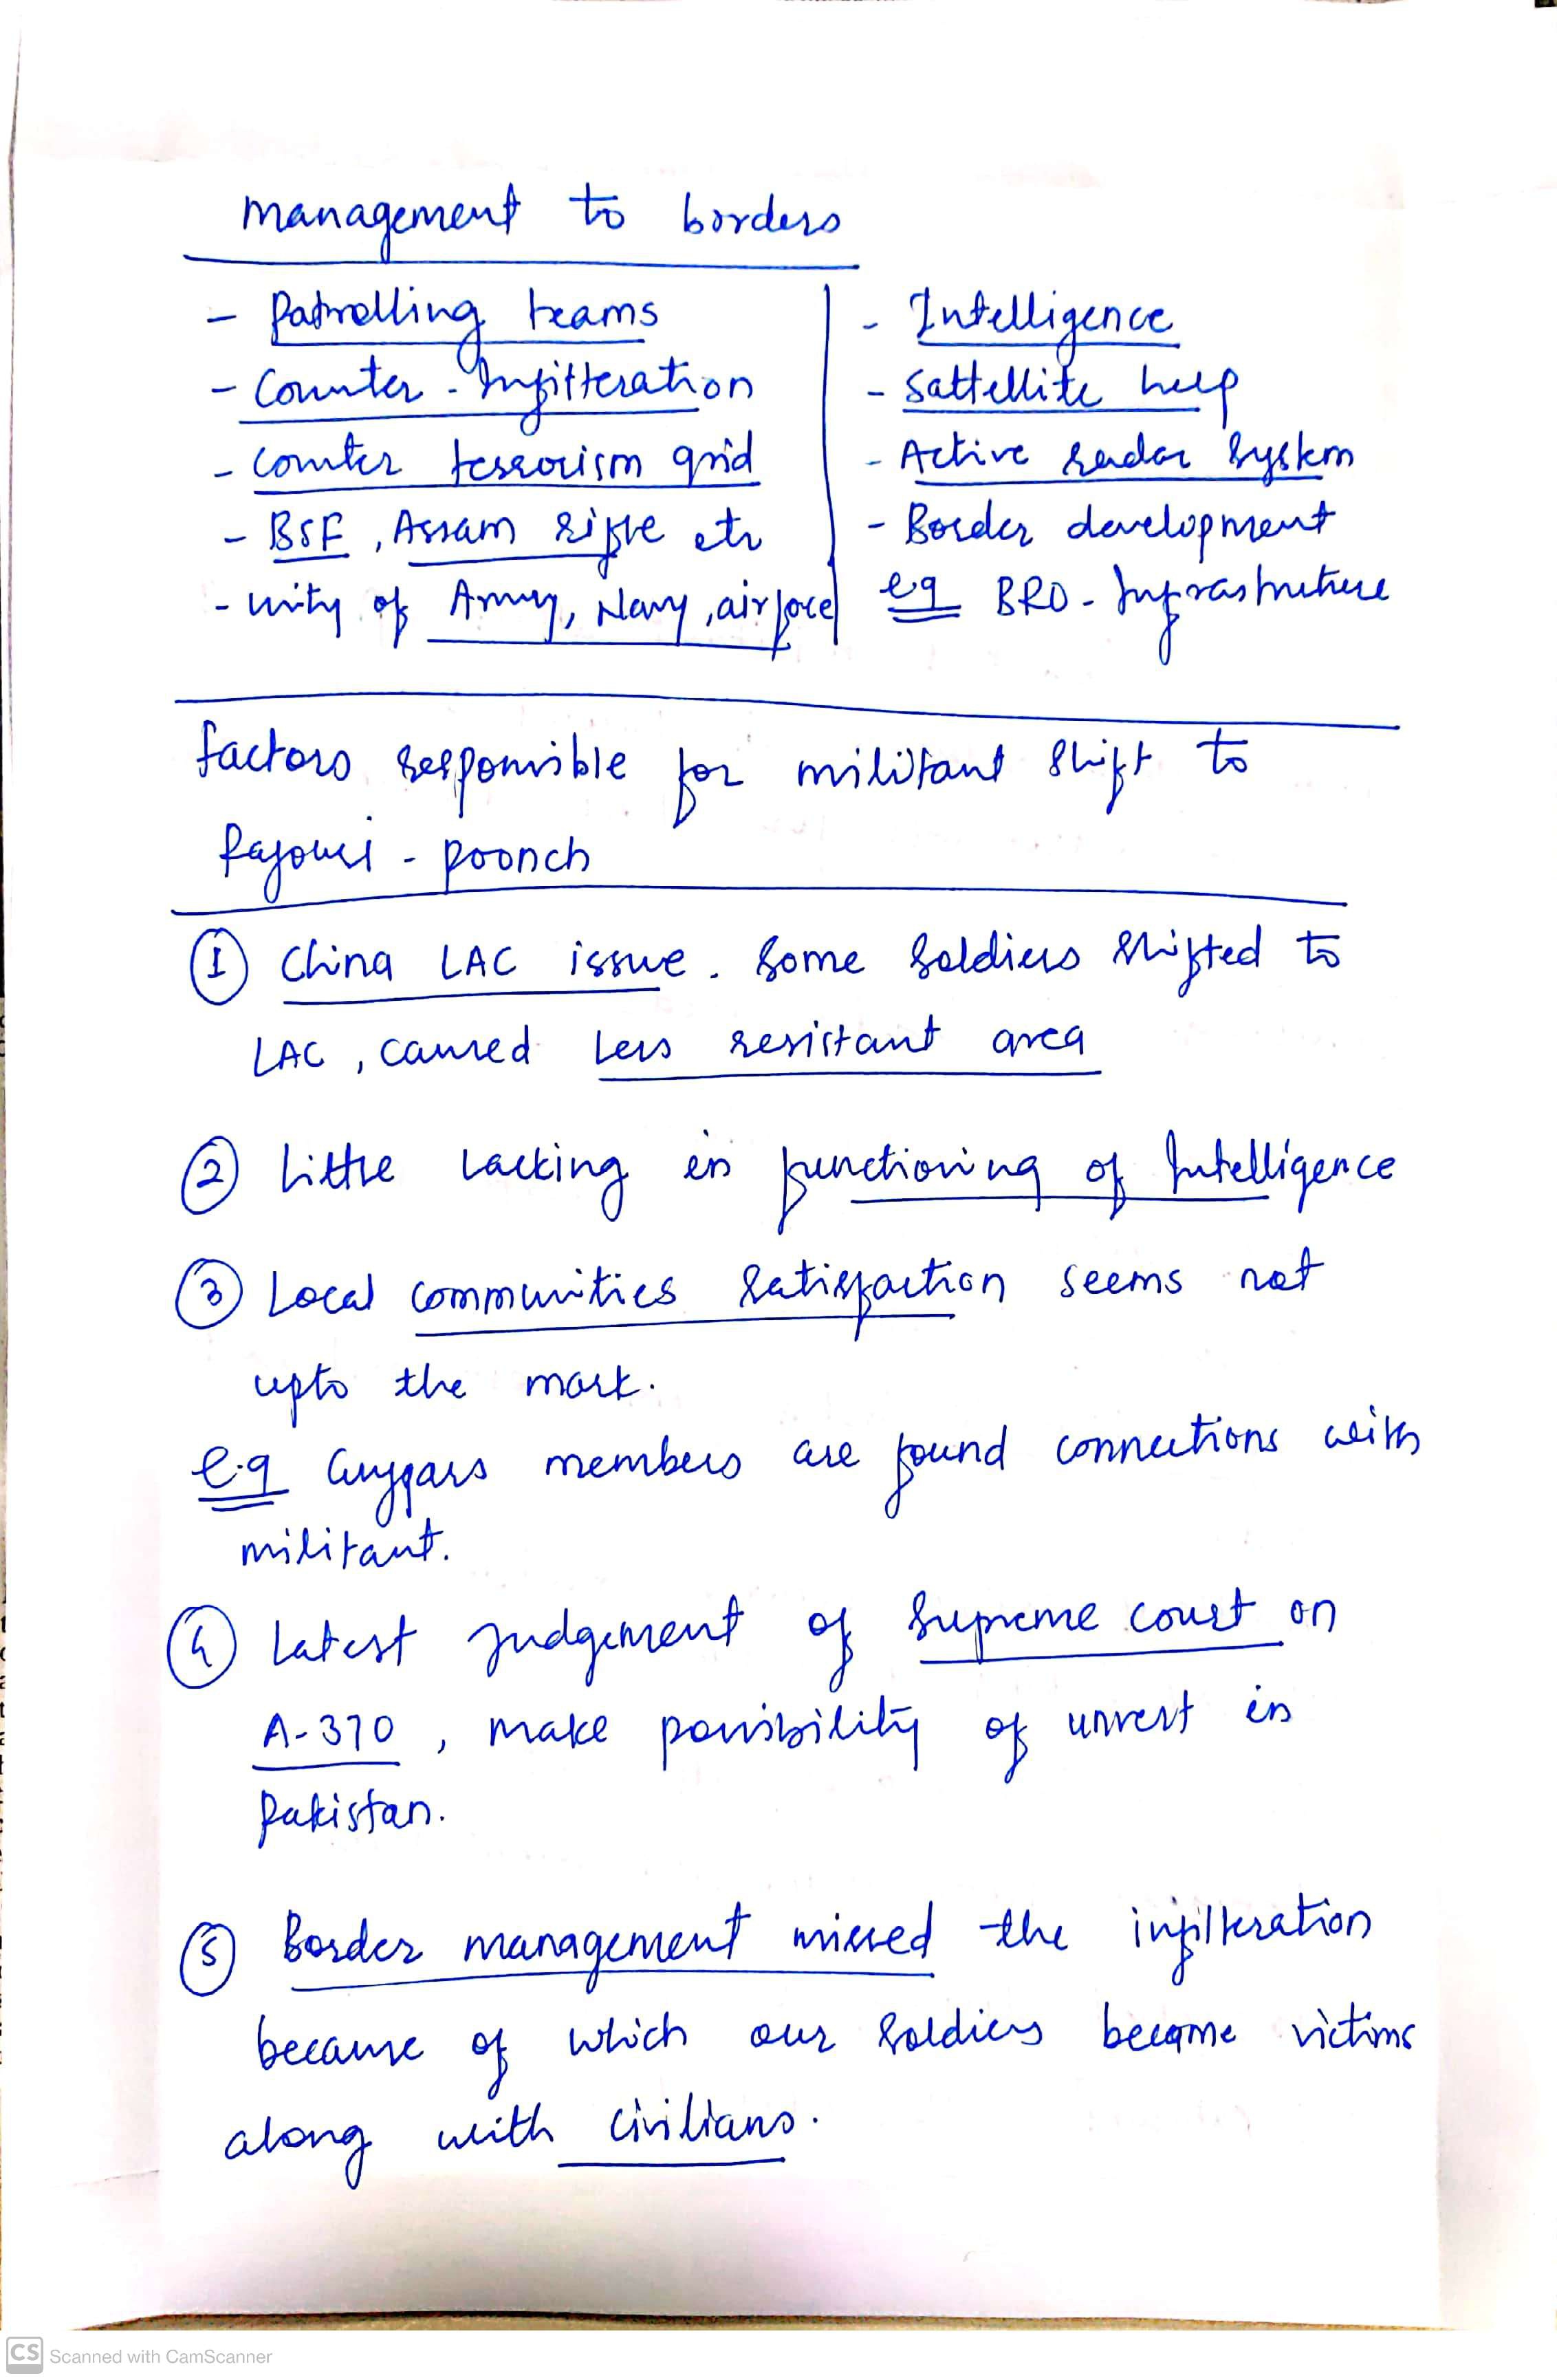 management to borders
- Patrolling teams
- Counter - Infitteration
- Counter terrorism grid
- BSF, Assam rifle etc
- unity of Army, Navy, airforce
- Intelligence
- Sattellite help
- Active radar system
- Border development
eg BRO - Infrastructure
factors responsible for militant shift to
Rajouri - poonch
① China LAC issue. Some Soldiers shifted to
LAC, caused less resistant area
② Little lacking in functioning of Intelligence
③ Local communities satisfaction seems not
upto the mark.
e.g Gujjars members are found connections with
militant.
④ Latest judgement of Supreme court on
A-370, make possibility of unrest in
Pakistan.
⑤ Border management missed the infilteration
because of which our soldiers become victims
along with civilians.
CS Scanned with CamScanner